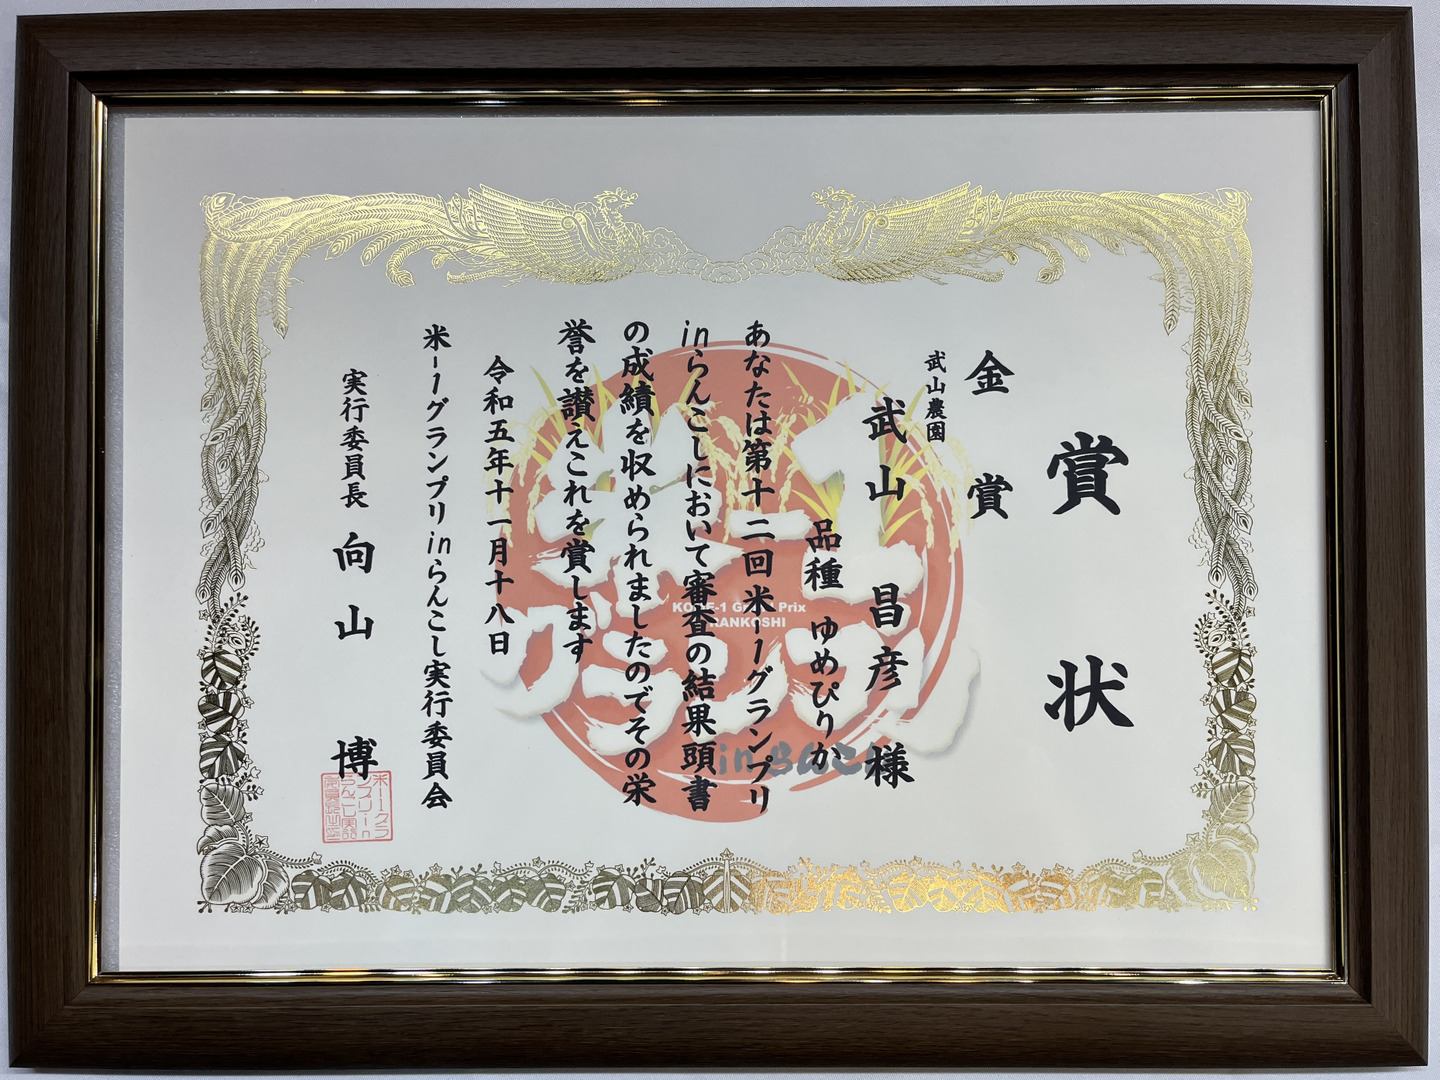 賞状
金賞
武山農園
武山昌彦様
品種 ゆめぴりか
あなたは第十二回米-1グランプリ
inらんこしにおいて審査の結果頭書
の成績を収められましたのでその栄
誉を讃えこれを賞します
令和五年十一月十八日
米-1グランプリinらんこし実行委員会
実行委員長 向山 博
米-1
グランプリ
KOME-1 Grand Prix
RANKOSHI
inらんこし